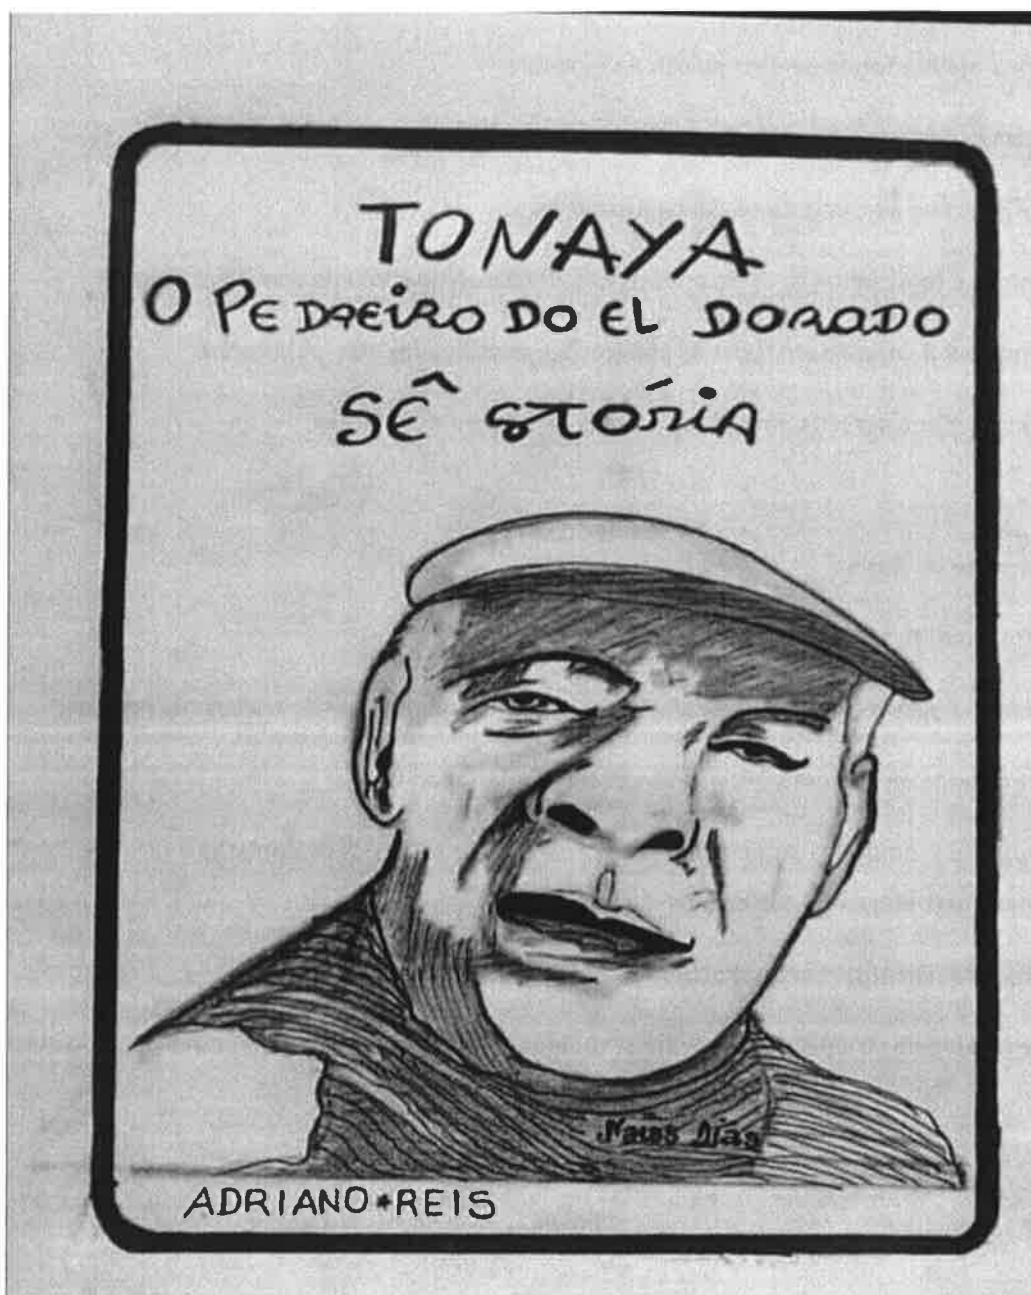 TONAYA
O PEDREIRO DO EL DORADO
SÊ STÓRIA
ADRIANO * REIS